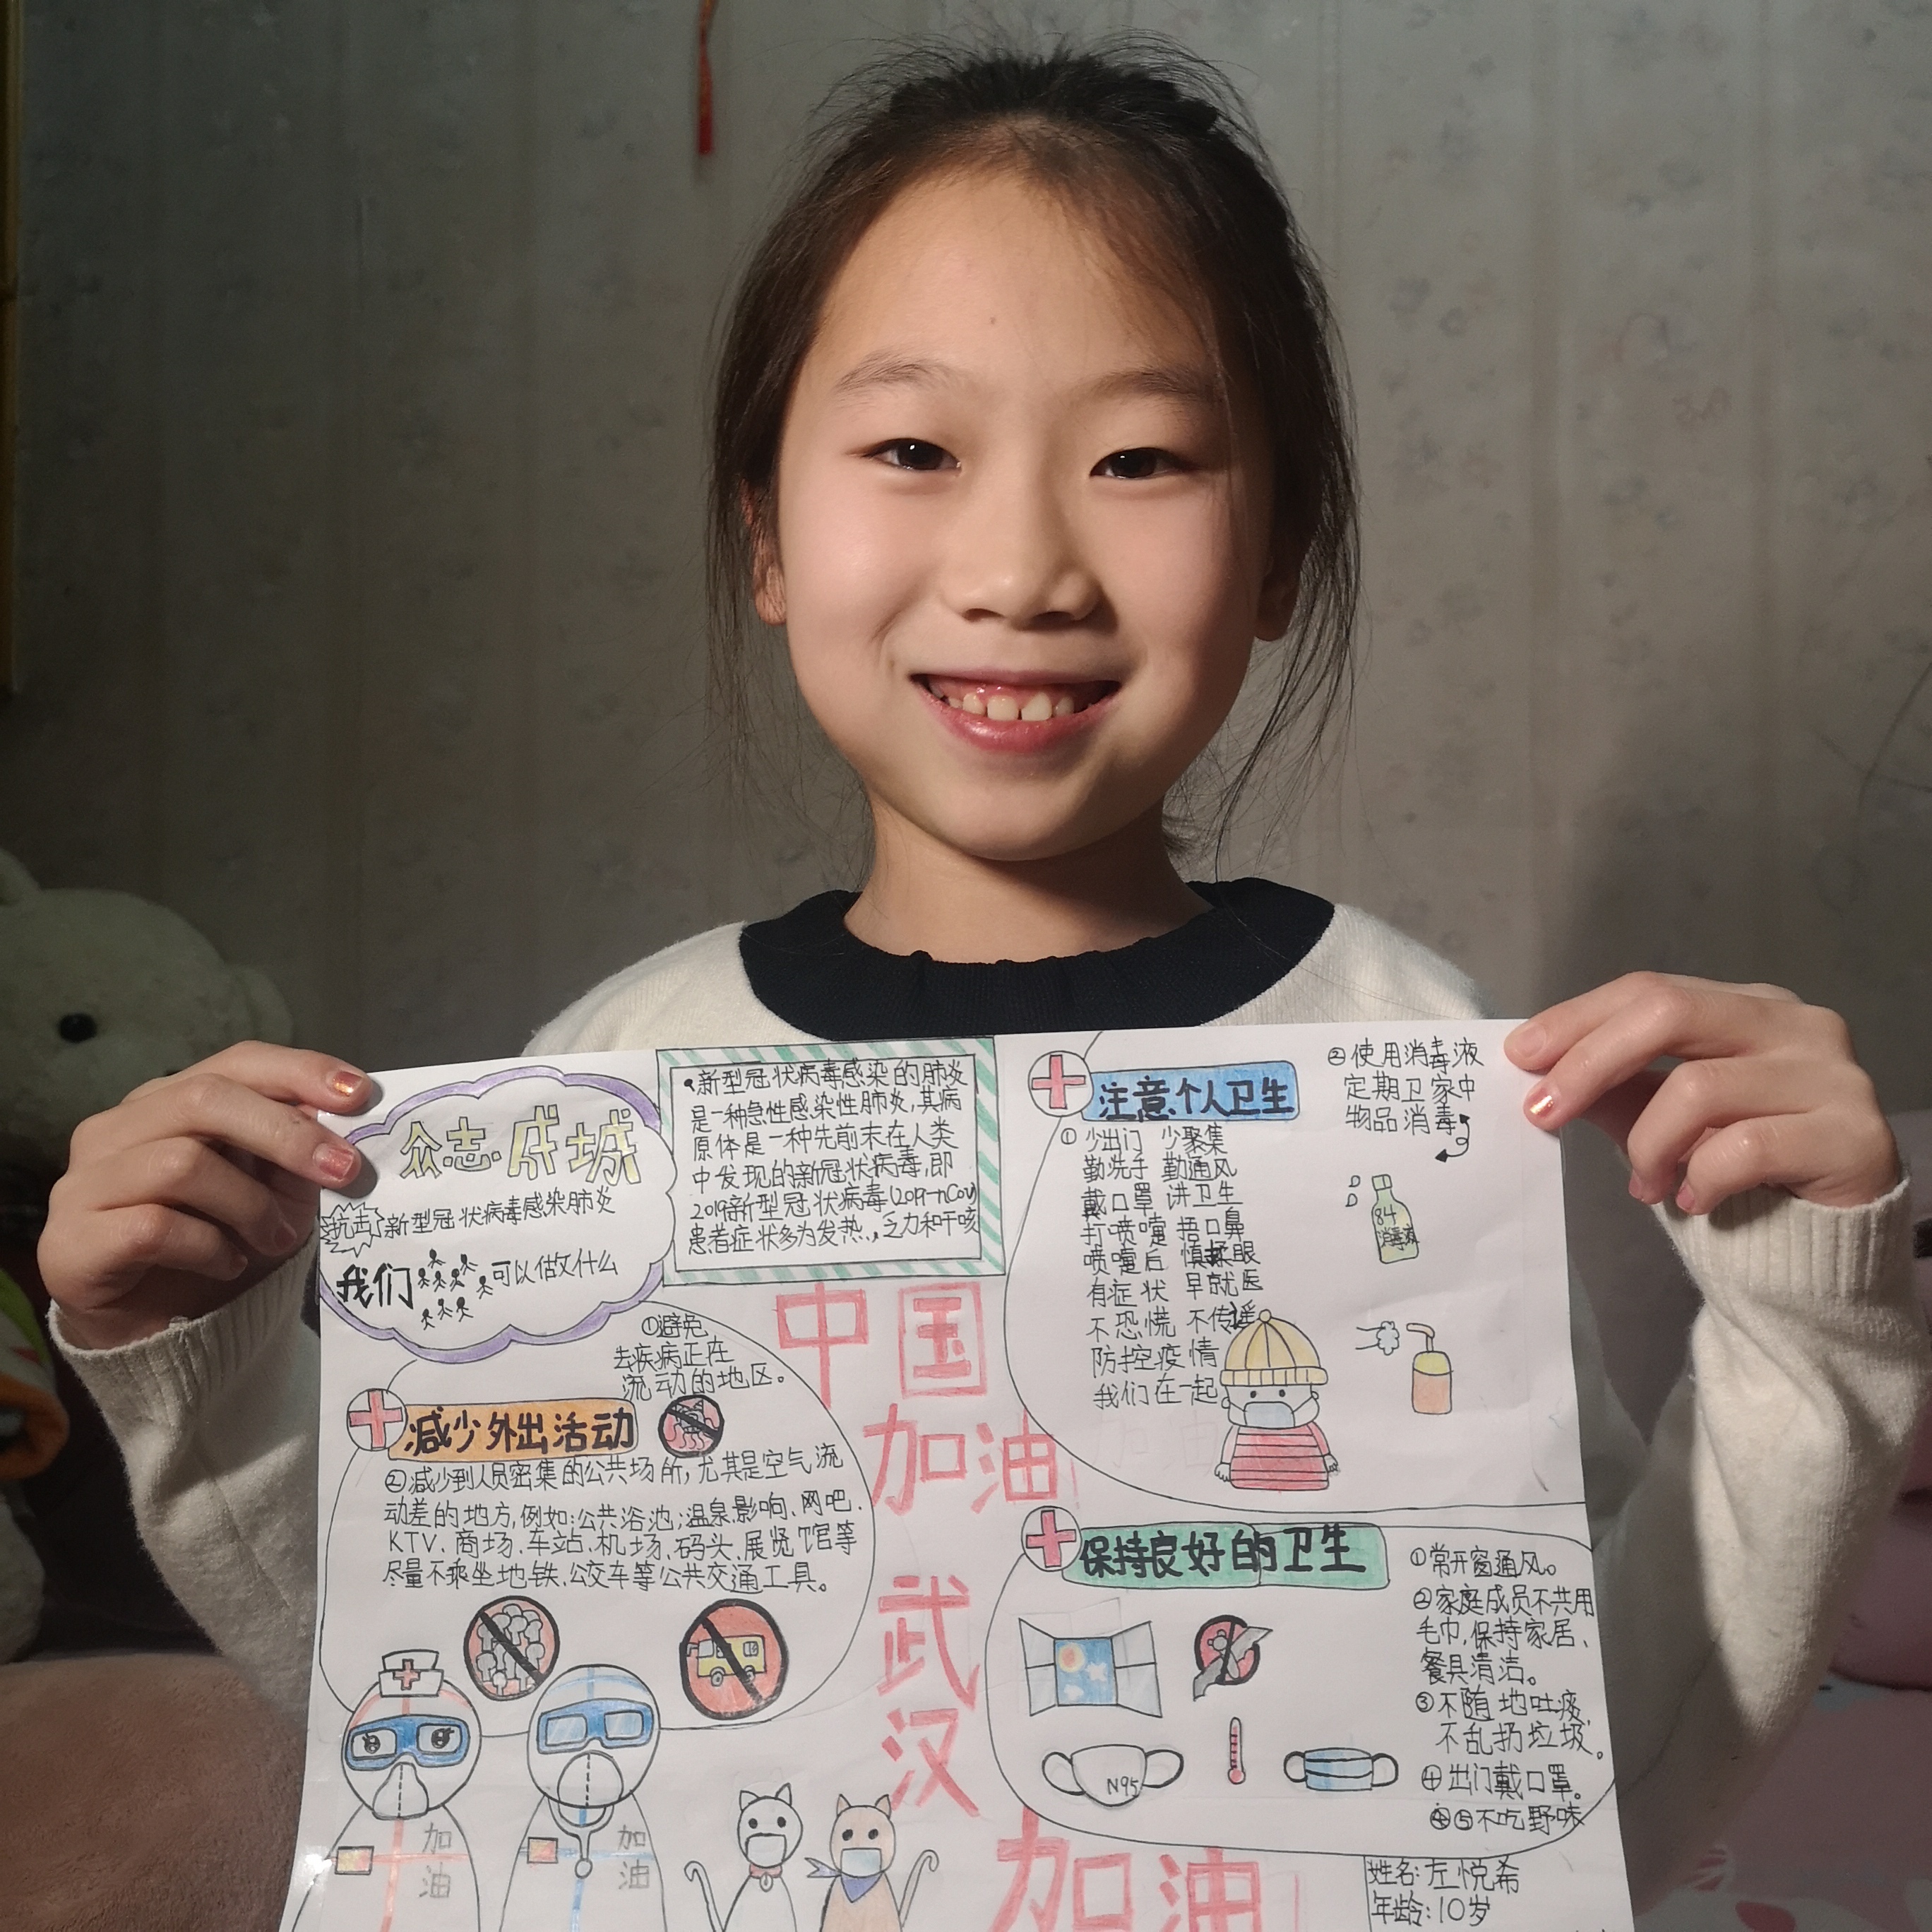 众志成城
抗击新型冠状病毒感染肺炎
我们可以做什么
新型冠状病毒感染的肺炎
是一种急性感染性肺炎,其病
原体是一种先前未在人类
中发现的新冠状病毒,即
2019新型冠状病毒(2019-nCov)
患者症状多为发热,,乏力和干咳
中国
加油
武
汉
加油
①避免
去疾病正在
流动的地区。
减少外出活动
②减少到人员密集的公共场所,尤其是空气流
动差的地方,例如:公共浴池;温泉、影响、网吧、
KTV、商场、车站、机场、码头、展览馆等
尽量不乘坐地铁、公交车等公共交通工具。
加
油
加
油
注意个人卫生
①少出门 少聚集
勤洗手 勤通风
戴口罩 讲卫生
打喷嚏 捂口鼻
喷嚏后 慎揉眼
有症状 早就医
不恐慌 不传谣
防控疫情
我们在一起
②使用消毒液
定期卫家中
物品消毒
84
消毒液
保持良好的卫生
①常开窗通风。
②家庭成员不共用
毛巾,保持家居、
餐具清洁。
③不随地吐痰,
不乱扔垃圾。
④出门戴口罩。
⑤不吃野味
N95
姓名:左悦希
年龄:10岁